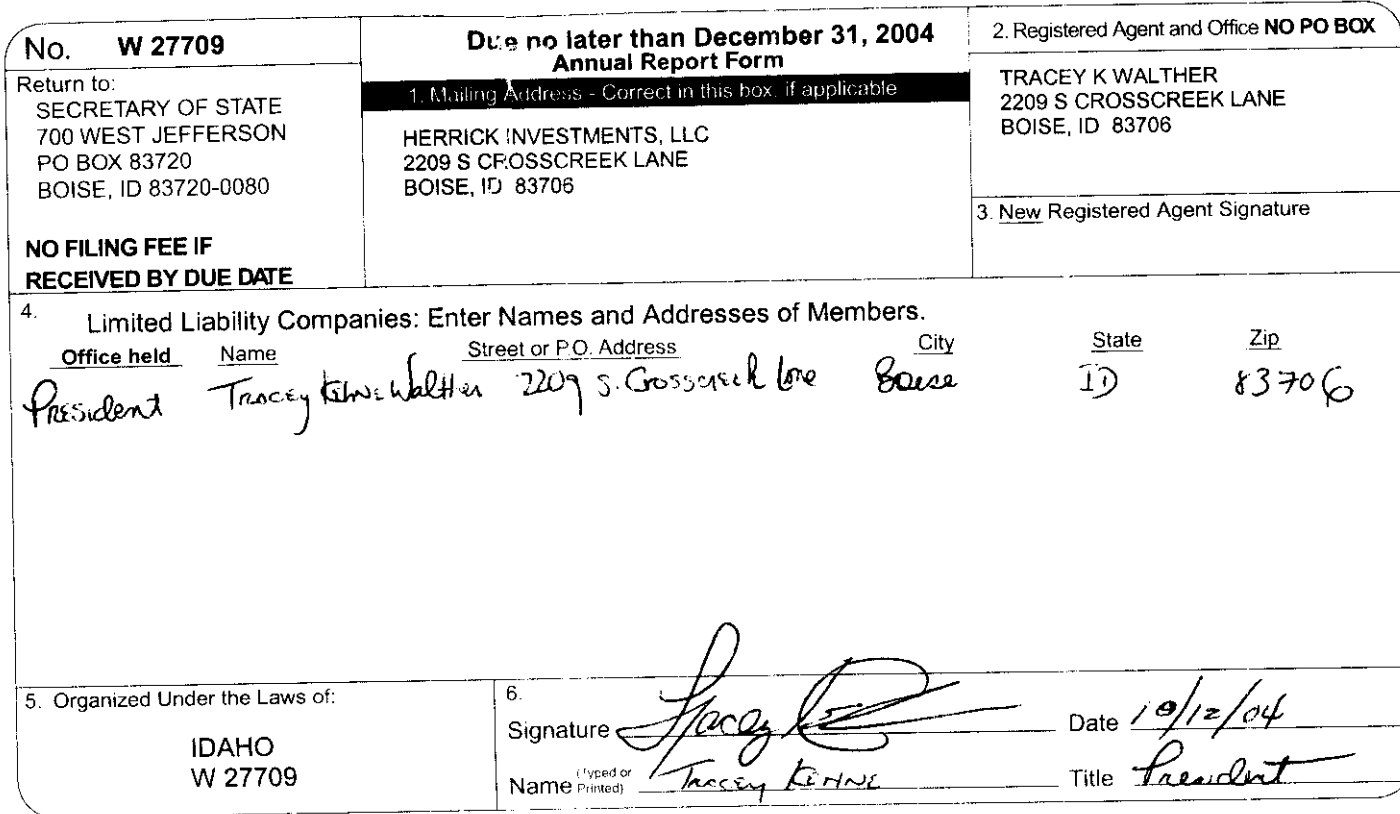 No. W 27709
Return to:
SECRETARY OF STATE
700 WEST JEFFERSON
PO BOX 83720
BOISE, ID 83720-0080
NO FILING FEE IF
RECEIVED BY DUE DATE
Due no later than December 31, 2004
Annual Report Form
1. Mailing Address - Correct in this box, if applicable
HERRICK INVESTMENTS, LLC
2209 S CROSSCREEK LANE
BOISE, ID 83706
2. Registered Agent and Office NO PO BOX
TRACEY K WALTHER
2209 S CROSSCREEK LANE
BOISE, ID 83706
3. New Registered Agent Signature
4. Limited Liability Companies: Enter Names and Addresses of Members.
Office held Name Street or P.O. Address City State Zip
President Tracey Walther 2209 S. Crosscreek Lane Boise ID 83706
5. Organized Under the Laws of:
IDAHO
W 27709
6.
Signature Tracey Date 10/12/04
Name (Typed or Printed) Tracey Title President